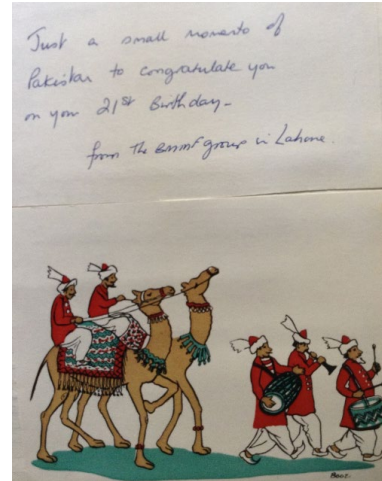 Just a small momento of
Pakistan to congratulate you
on your 21st Birthday-
from The BMMF group in Lahore.